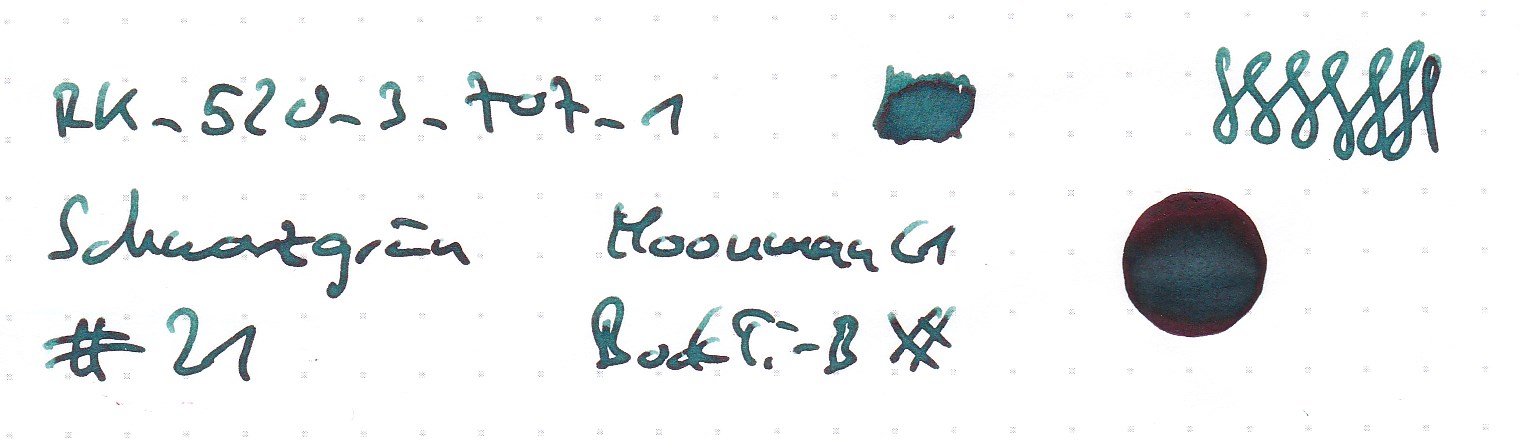 RK-520-3-707-1
Schwarzgrün Moonman C1
#21 Bock Ti-B